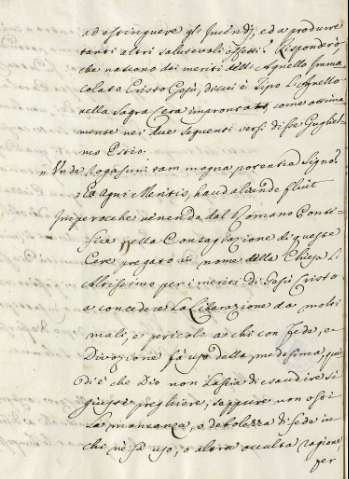 ad estinguere gl' Incendj, ed a produrre
tanti altri salutevoli effetti? Risponderò,
che nascono dai meriti dell' Agnello Imma
colato Cristo Gesù, di cui è Tipo l'Agnello
nella Sagra Cera improntato, come ottima
mente nei due seguenti versi disse Gugliel
mo Estio
Unde, Rogas, tam magna potentia Signo?
Ex Agni Meritis, haud aliunde fluit
Imperocche venendo dal Romano Ponte
fice nella Consagrazione di queste
Cere pregato in nome della Chiesa l'
Altissimo per i meriti di Gesù Cristo
a concedere la Liberazione da molti
mali, e pericoli a chi con fede, e
Divozione fà uso della medesima, quin
di è che Dio non lascia di esaudire sì
giuste preghiere, seppure non osti
la mancanza, o debolezza di fede in
chi ne fà uso, o altra occulta ragione,
per